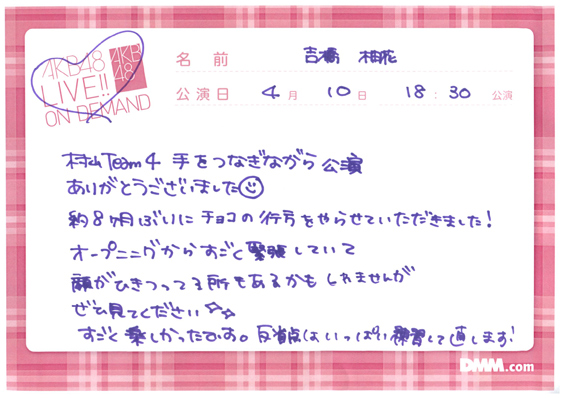 AKB48
LIVE!!
ON DEMAND
AKB
48
名前 吉橋 柚花
公演日 4月 10日 18:30 公演
村山Team4 手をつなぎながら公演
ありがとうございました
約8ヶ月ぶりにチョコの行方をやらせていただきました!
オープニングからすごく緊張していて
顔がひきつってる所もあるかもしれませんが
ぜひ見てください☆☆
すごく楽しかったです。反省点はいっぱい練習して直します!
DMM.com